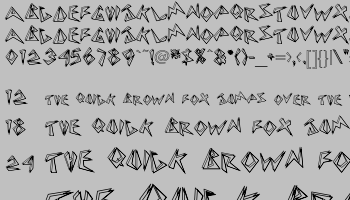 ABCDEFGHIJKLMNOPQRSTUVWX
ABCDEFGHIJKLMNOPQRSTUVWX
0123456789
12 THE QUICK BROWN FOX JUMPS OVER THE
18 THE QUICK BROWN FOX JUMP
24 THE QUICK BROWN FO